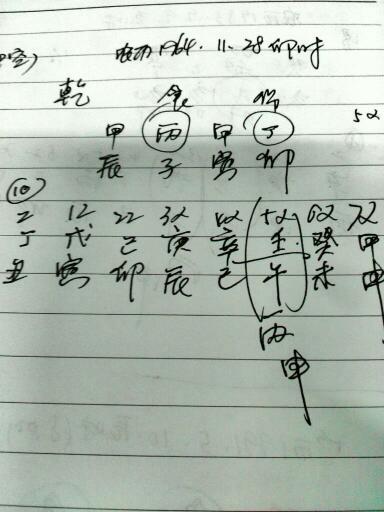 农历1964.11.28卯时
乾 食 伤
甲 丙 甲 丁
辰 子 寅 卯
10
2 12 22 32 42 52 62 72
丁 戊 己 庚 辛 壬 癸 甲
丑 寅 卯 辰 巳 午 未 申
丙
申